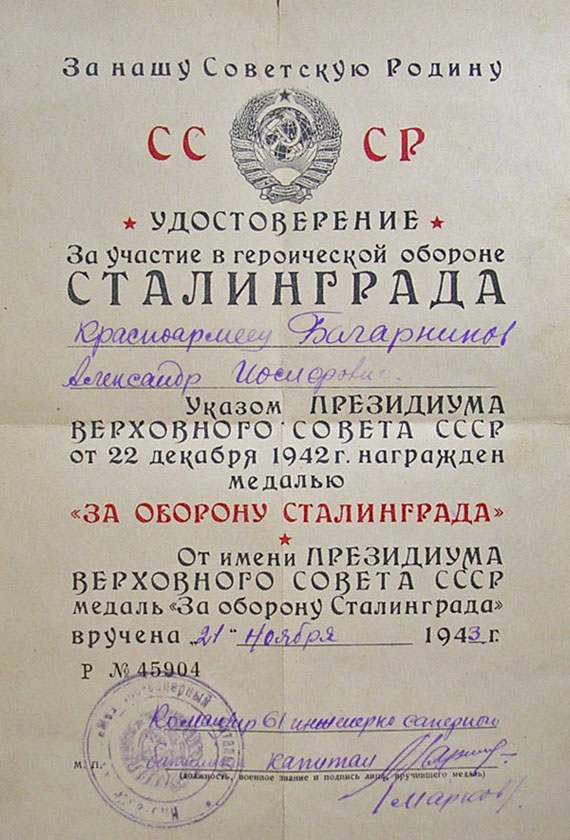 За нашу Советскую Родину
СС СР
УДОСТОВЕРЕНИЕ
За участие в героической обороне
СТАЛИНГРАДА
Красноармеец Багарников
Александр Иосифович.
Указом ПРЕЗИДИУМА
ВЕРХОВНОГО СОВЕТА СССР
от 22 декабря 1942 г. награжден
медалью
«ЗА ОБОРОНУ СТАЛИНГРАДА»
От имени ПРЕЗИДИУМА
ВЕРХОВНОГО СОВЕТА СССР
медаль «За оборону Сталинграда»
вручена „21" ноября 1943 г.
Р № 45904
Командир 61 инженерно саперного
капитан
М. П.
(должность, военное звание и подпись лица, вручившего медаль)
(Марков)